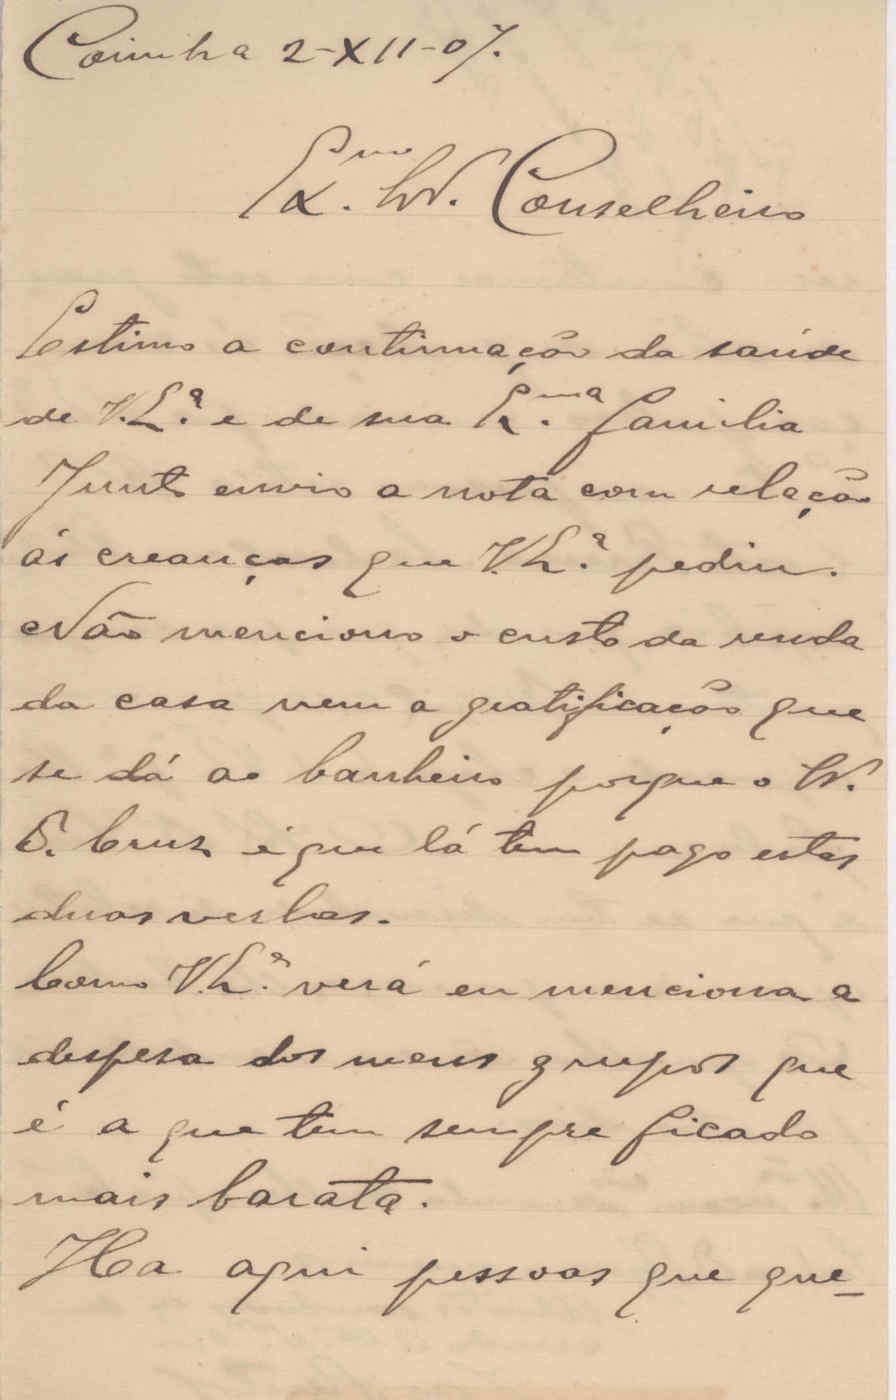 Coimbra 2-XII-07.
Exmo. Sr. Conselheiro
Estimo a continuação da saúde
de V. Ex.ª e de sua Ex.ma familia
Junto envio a nota com relação
ás creanças que V. Ex.ª pediu.
Não menciono o custo da renda
da casa nem a gratificação que
se dá ao banheiro porque o Sr.
S. Cruz é que lá tem pago estas
duas verbas.
Como V. Ex.ª verá eu menciona a
despesa dos meus grupos que
é a que tem sempre ficado
mais barata.
Ha aqui pessoas que que-